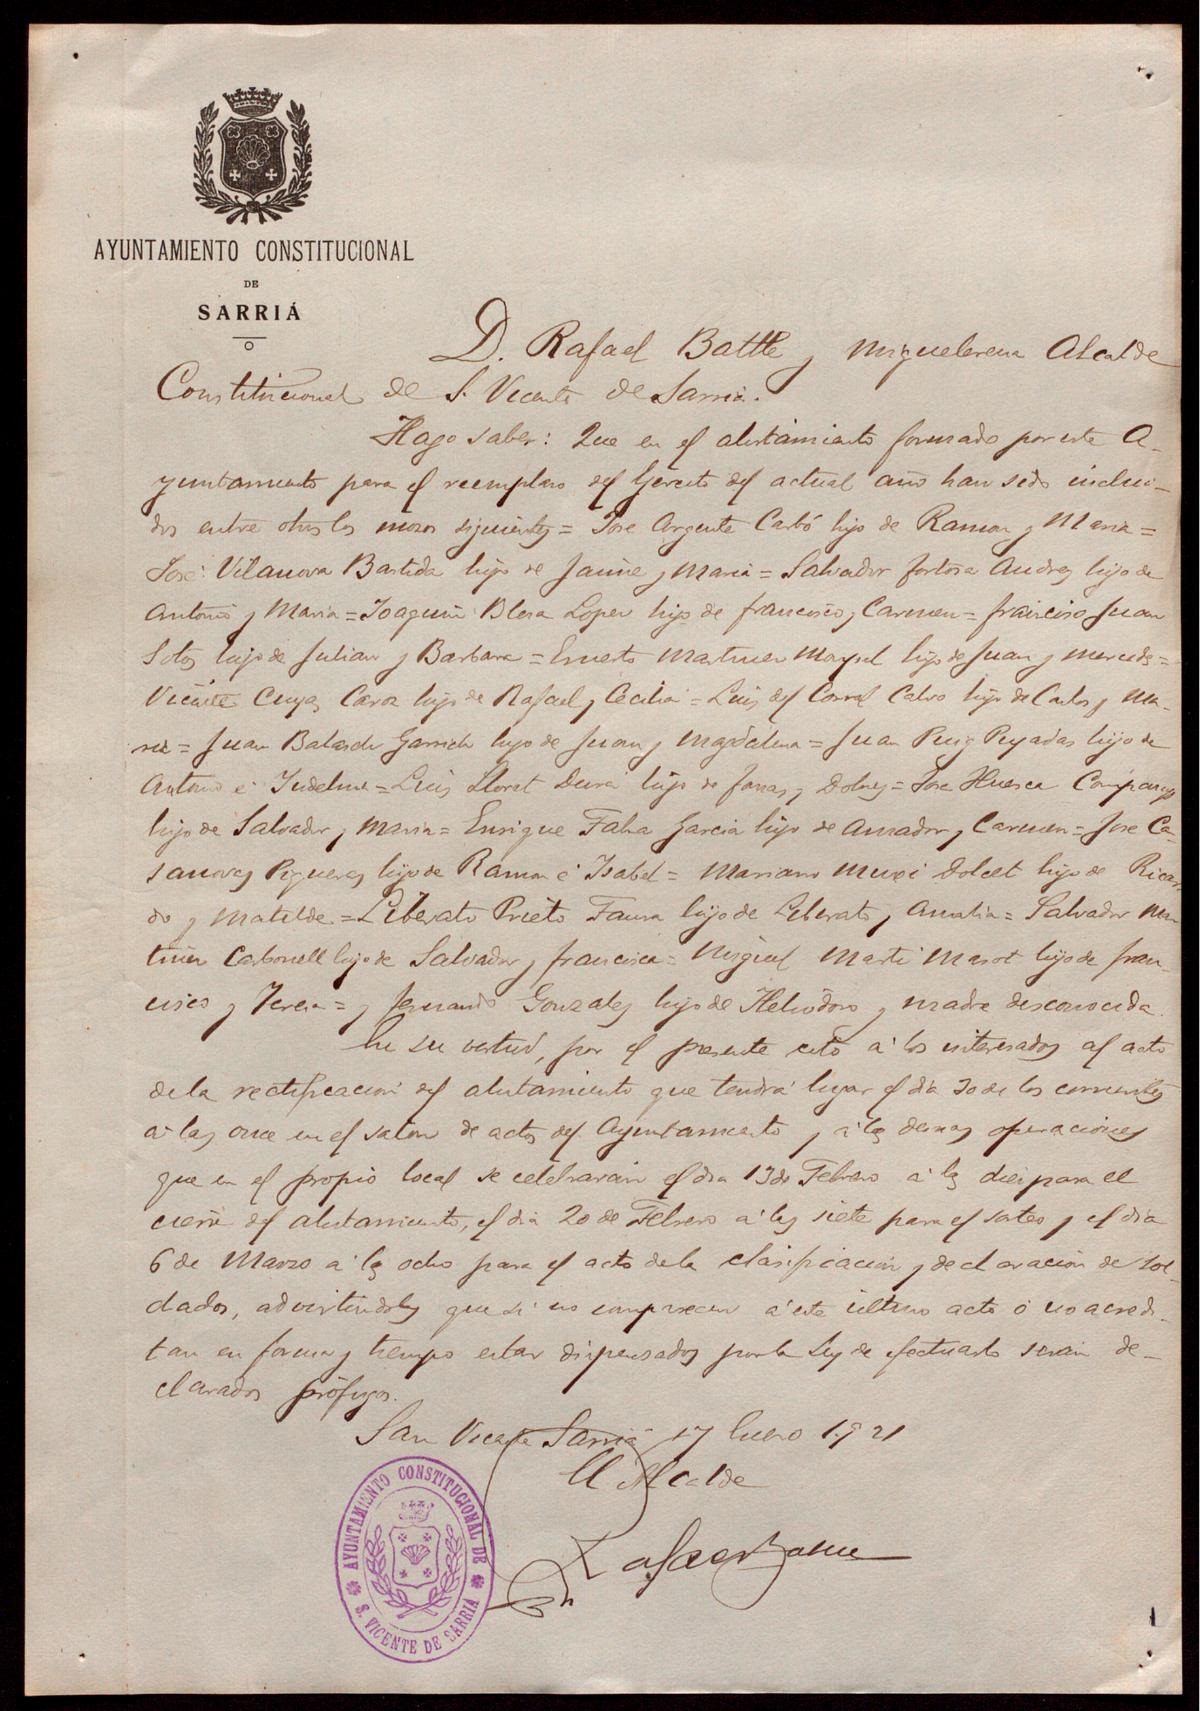 AYUNTAMIENTO CONSTITUCIONAL
DE
SARRIÁ
D. Rafael Battle y Miguelerena Alcalde
Constitucional de S. Vicente de Sarriá.
Hago saber: Que en el alistamiento formado por este A-
yuntamiento para el reemplazo del Ejército del actual año han sido inclui-
dos entre otros los mozos siguientes = José Argente Carbó hijo de Ramon y Maria =
José Vilanova Bastida hijo de Jaime y Maria = Salvador Tortosa Andres hijo de
Antonio y Maria = Joaquin Blesa Lopez hijo de Francisco y Carmen = Francisco Juan
Sotos hijo de Julian y Barbara = Ernesto Martinez hijo de Juan y Mercedes =
Vicente Cuyas hijo de Rafael y Cecilia = Luis del Corral Calvo hijo de Carlos y Ma-
ria = Juan Balasch Garrich hijo de Juan y Magdalena = Juan Puig Pujadas hijo de
Antonio é = Luis Lloret Durá hijo de y Dolores = José Huesca Companys
hijo de Salvador y Maria = Enrique Faba Garcia hijo de Amador y Carmen = José Ca-
sanovas Pigueras hijo de Ramon é Isabel = Mariano Dolcet hijo de Ricar-
do y Matilde = Liberato Prieto Faura hijo de Liberato y Amalia = Salvador Mar-
tinez Carbonell hijo de Salvador y Francisca = Miguel Marti Masot hijo de Fran-
cisco y Teresa = y Fernando Gonzalez hijo de Heliodoro y madre desconocida.
En su virtud, por el presente cito á los interesados al acto
de la rectificación del alistamiento que tendrá lugar el día 30 de los corrientes
á las once en el salon de actos del Ayuntamiento y á las demas operaciones
que en el propio local se celebrarán el dia 13 de Febrero á las diez para el
cierre del alistamiento, el dia 20 de Febrero á las siete para el sorteo y el dia
6 de Marzo á las ocho para el acto de la clasificación y declaración de sol-
dados, advirtiéndoles que si no comparecen á este último acto ó no acredi-
tan en forma y tiempo estar dispensados por la Ley de efectuarlo serán de-
clarados prófugos.
San Vicente Sarriá 17 Enero 1921
El Alcalde
Rafael Battle
AYUNTAMIENTO CONSTITUCIONAL DE
S. VICENTE DE SARRIÁ